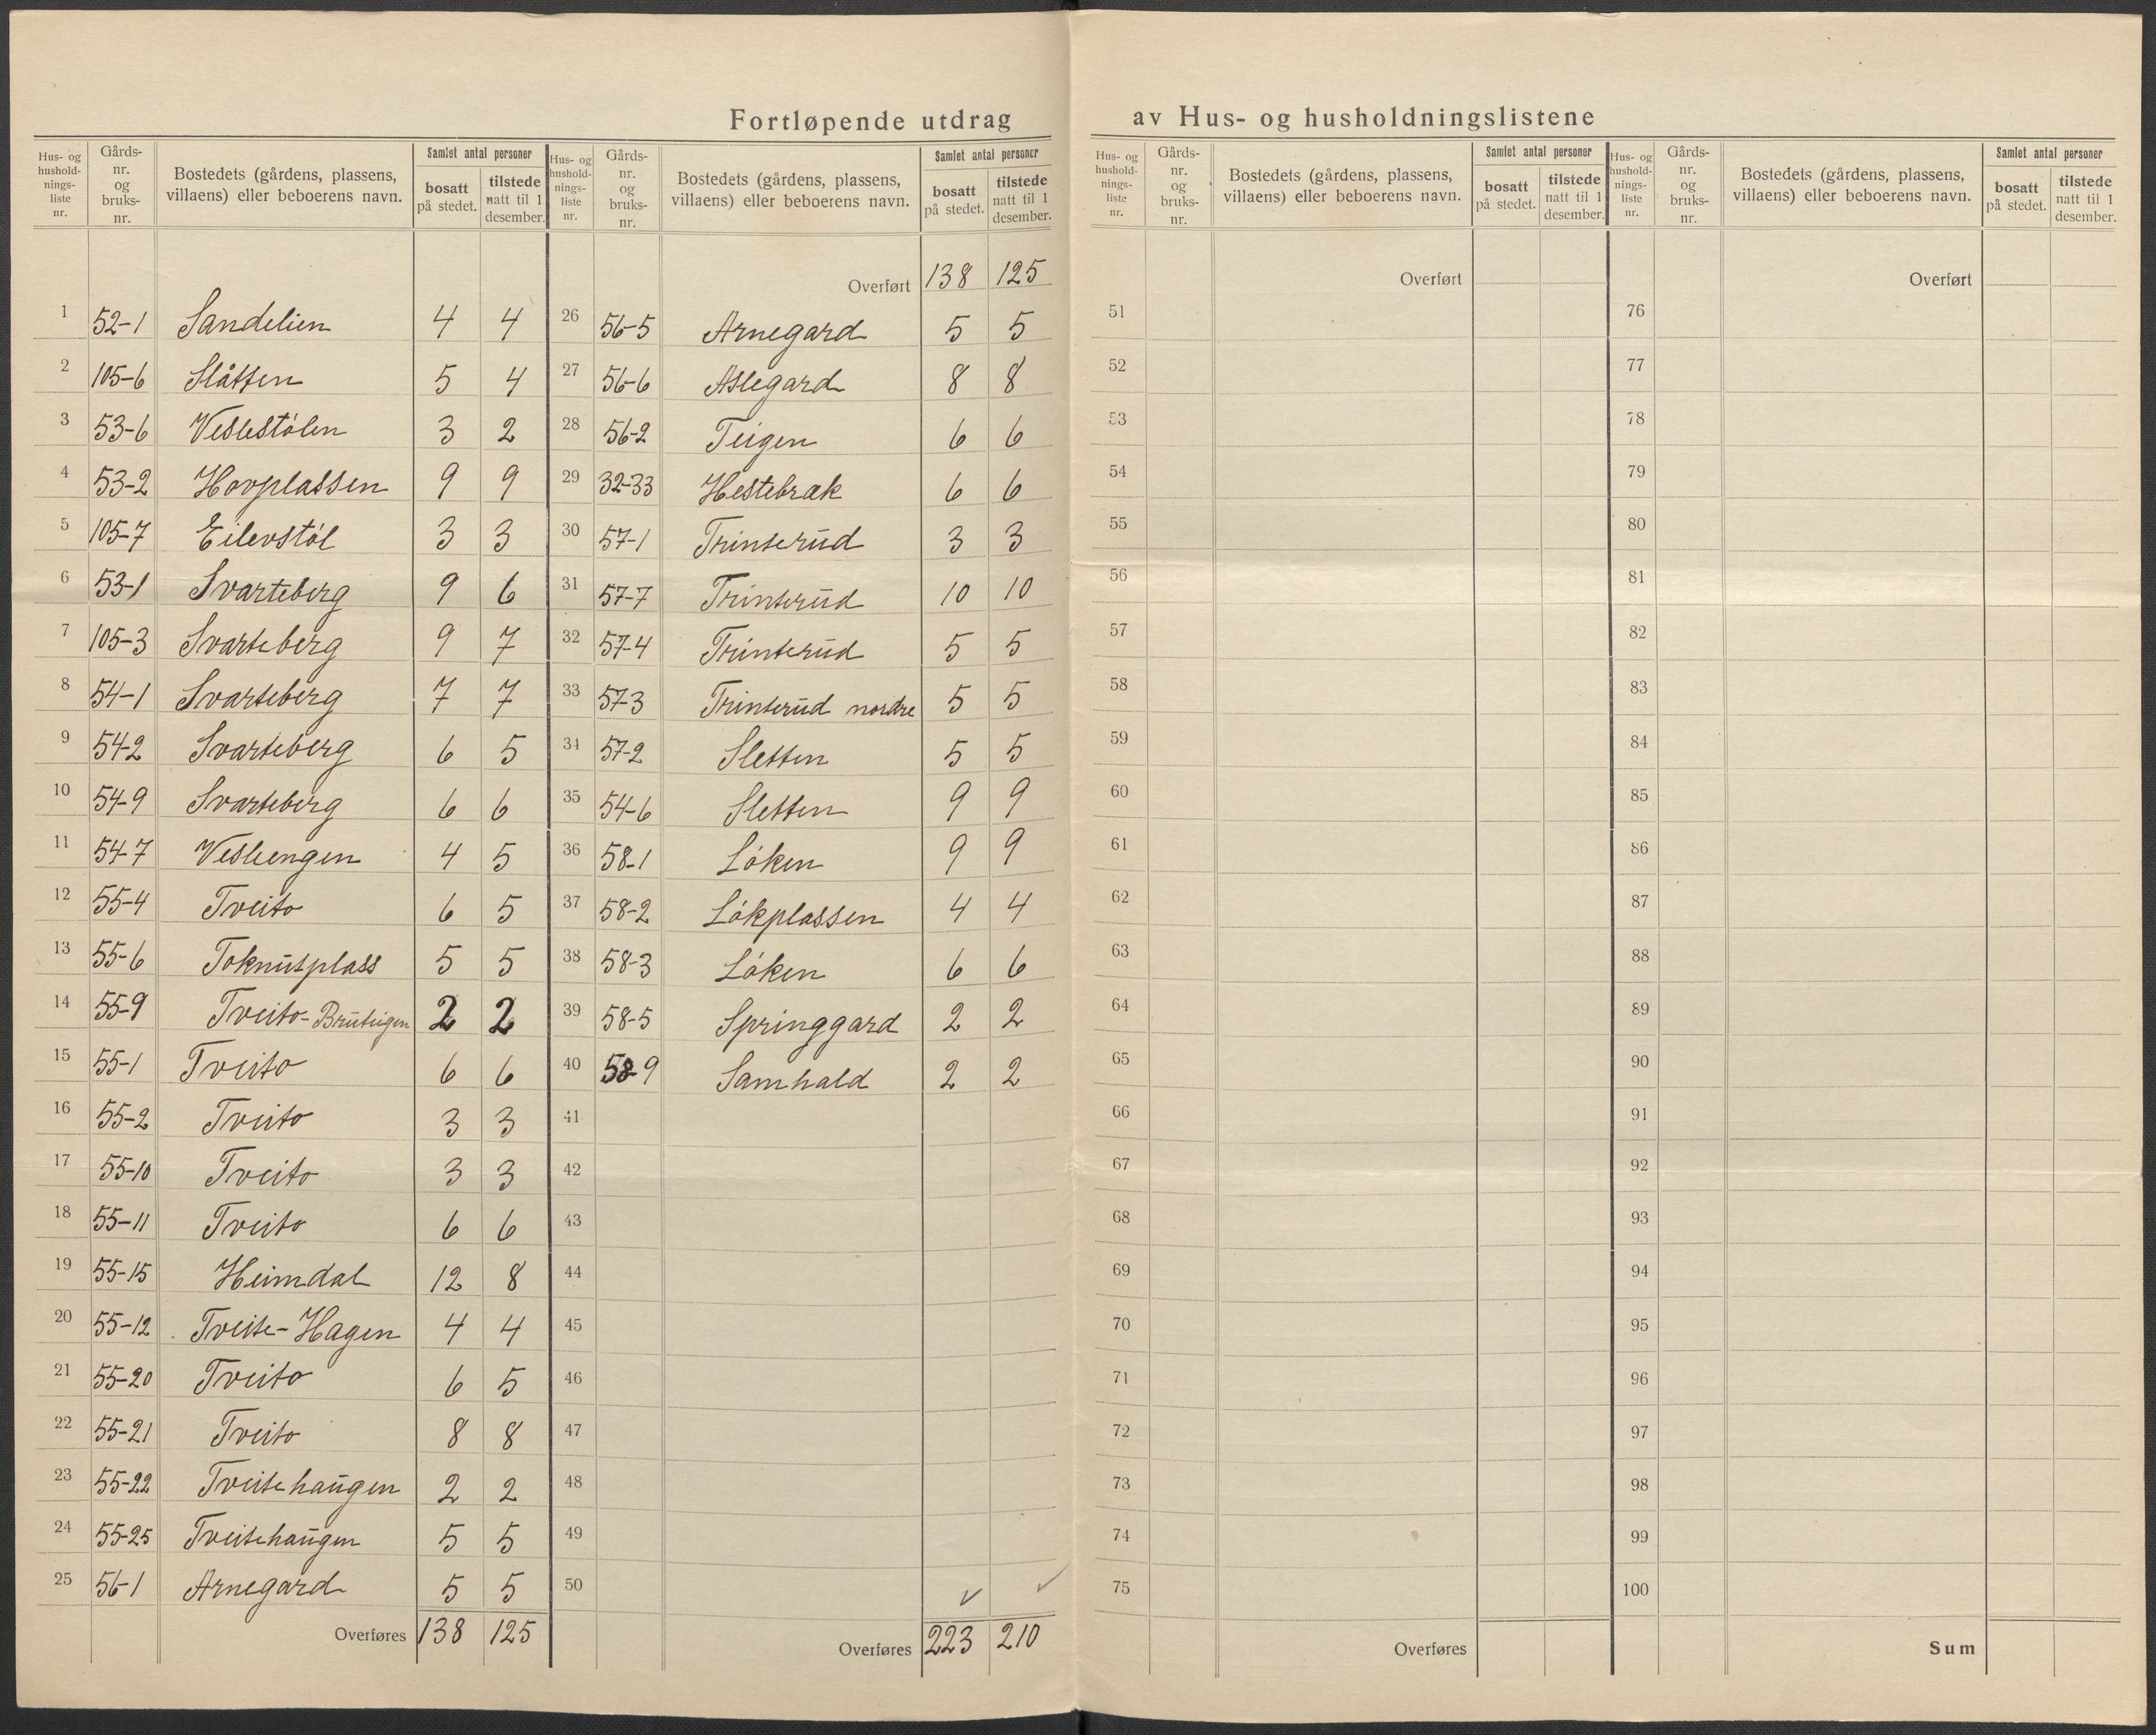 Fortløpende utdrag av Hus- og husholdningslistene
Hus- og hushold-nings-liste nr. Gårds-nr. og bruks-nr. Bostedets (gårdens, plassens, villaens) eller beboerens navn. Samlet antal personer bosatt på stedet. tilstede natt til 1 desember.
1 52-1 Sandelien 4 4
2 105-6 Slåtten 5 4
3 53-6 Veslestölen 3 2
4 53-2 Hovplassen 9 9
5 105-7 Eilevstöl 3 3
6 53-1 Svarteberg 9 6
7 105-3 Svarteberg 9 7
8 54-1 Svarteberg 7 7
9 54-2 Svarteberg 6 5
10 54-9 Svarteberg 6 6
11 54-7 Vesleengen 4 5
12 55-4 Tveito 6 5
13 55-6 Toknutplass 5 5
14 55-9 Tveito-Bruteigen 2 2
15 55-1 Tveito 6 6
16 55-2 Tveito 3 3
17 55-10 Tveito 3 3
18 55-11 Tveito 6 6
19 55-15 Heimdal 12 8
20 55-12 Tveite-Hagen 4 4
21 55-20 Tveito 6 5
22 55-21 Tveito 8 8
23 55-22 Tveitehaugen 2 2
24 55-25 Tveitehaugen 5 5
25 56-1 Arnegard 5 5
Overføres 138 125
Hus- og hushold-nings-liste nr. Gårds-nr. og bruks-nr. Bostedets (gårdens, plassens, villaens) eller beboerens navn. Samlet antal personer bosatt på stedet. tilstede natt til 1 desember.
Overført 138 125
26 56-5 Arnegard 5 5
27 56-6 Aslegard 8 8
28 56-2 Teigen 6 6
29 32-33 Hestebrak 6 6
30 57-1 Trinterud 3 3
31 57-7 Trinterud 10 10
32 57-4 Trinterud 5 5
33 57-3 Trinterud nordre 5 5
34 57-2 Sletten 5 5
35 54-6 Sletten 9 9
36 58-1 Löken 9 9
37 58-2 Lökplassen 4 4
38 58-3 Löken 6 6
39 58-5 Springgard 2 2
40 58-9 Samhald 2 2
41
42
43
44
45
46
47
48
49
50
Overføres 223 210
Hus- og hushold-nings-liste nr. Gårds-nr. og bruks-nr. Bostedets (gårdens, plassens, villaens) eller beboerens navn. Samlet antal personer bosatt på stedet. tilstede natt til 1 desember.
Overført
51
52
53
54
55
56
57
58
59
60
61
62
63
64
65
66
67
68
69
70
71
72
73
74
75
Overføres
Hus- og hushold-nings-liste nr. Gårds-nr. og bruks-nr. Bostedets (gårdens, plassens, villaens) eller beboerens navn. Samlet antal personer bosatt på stedet. tilstede natt til 1 desember.
Overført
76
77
78
79
80
81
82
83
84
85
86
87
88
89
90
91
92
93
94
95
96
97
98
99
100
Sum